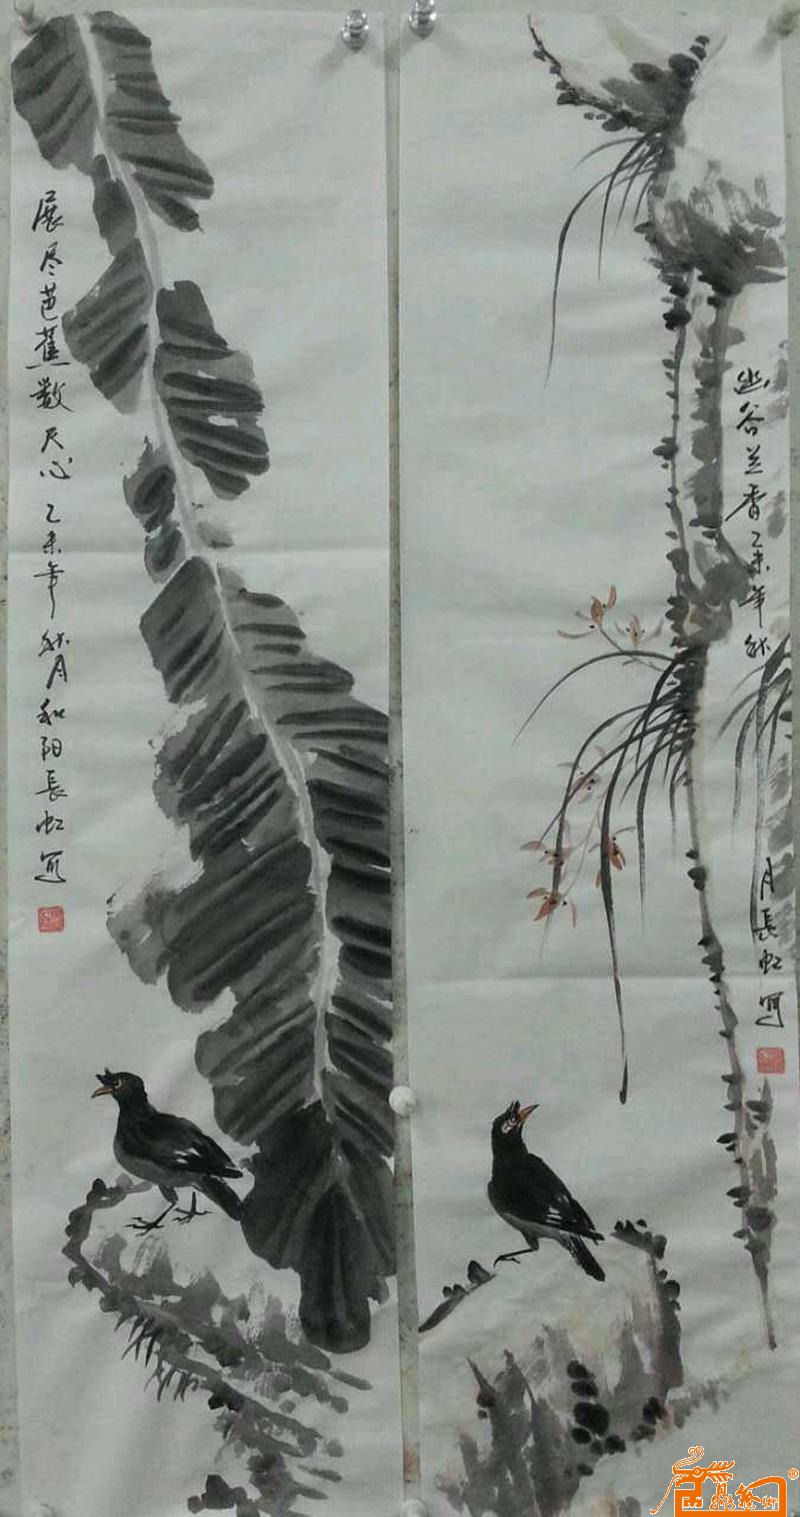 展尽芭蕉数尺心 乙未年 秋月 和阳長虹写
幽谷兰香 乙未年秋
月長虹写